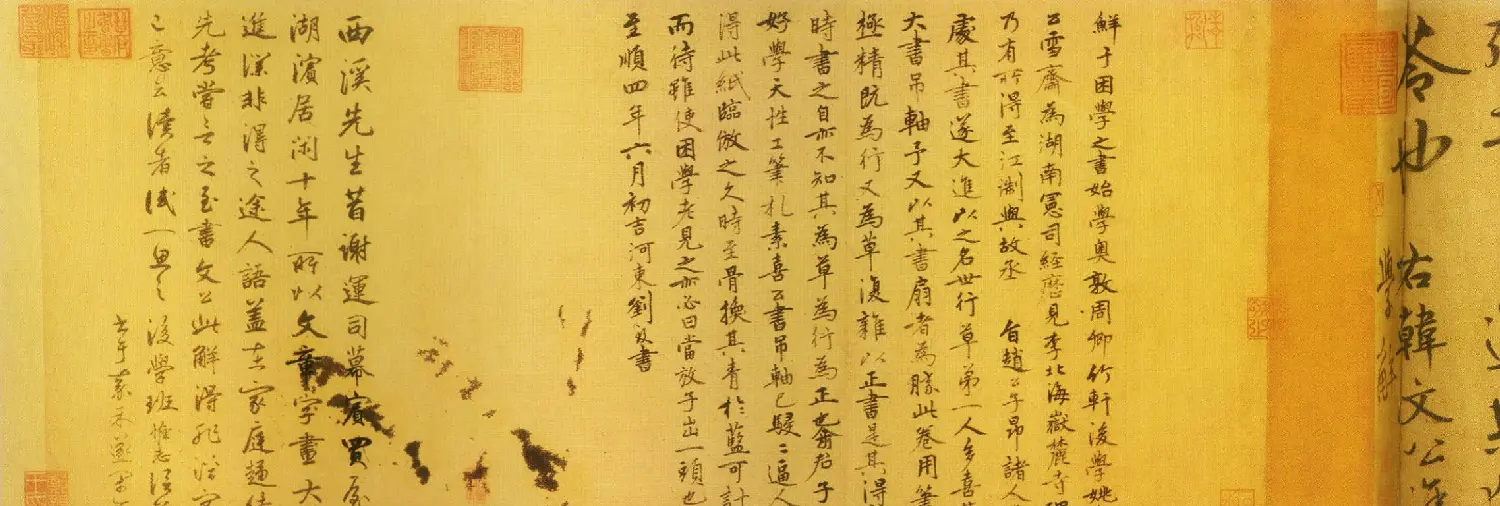 苓也
右韓文公進
學解
鮮于困學之書始學奧敦周卿竹軒後學姚
公雪齋為湖南憲司經歷見李北海嶽麓寺碑
乃有所得至江淛與故承旨趙公子昂諸人
處其書遂大進以之名世行草第一人多喜其
大書吊軸予又以其書扇者為勝此卷用筆
極精既為行又為草復雜以正書是其得
時書之自亦不知其為草為行為正也喬君子
好學天性工筆札素喜公書吊軸已駸二逼人
得此紙臨倣之久時至骨換其青於藍可計
而待雖使困學老見之亦必曰當放子出一頭也
至順四年六月初吉河東劉致書
西溪先生昔謝運司幕賓買屋
湖濱居閑十年所以文章字畫大
進深非得之途人語蓋士家庭
先考嘗言之至書文公此解得
己意云讀者試一思之後學班惟志